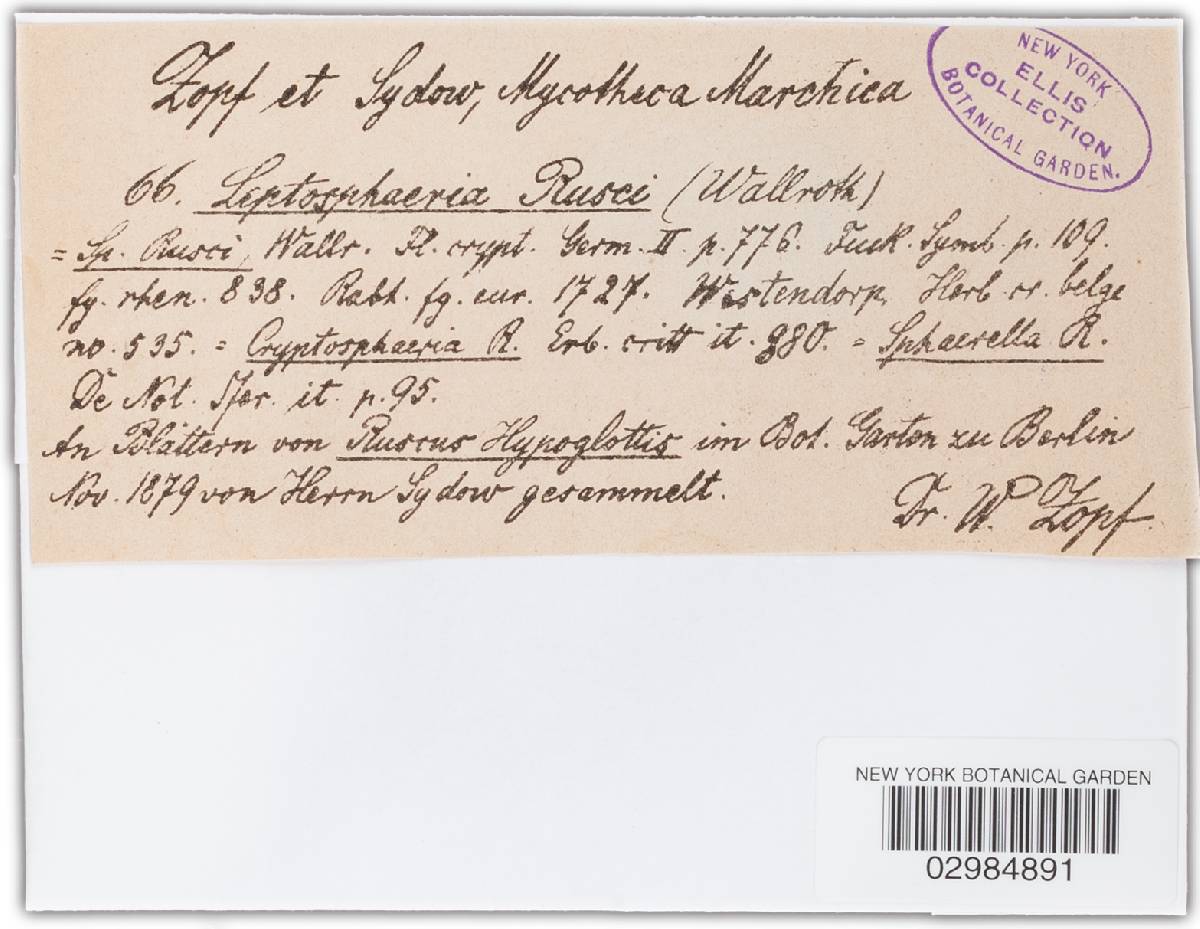 Zopf et Sydow, Mycotheca Marchica
NEW YORK
ELLIS
COLLECTION
BOTANICAL GARDEN.
66. Leptosphaeria Rusci (Wallroth)
= Sp. Rusci, Wallr. Fl. crypt. Germ. II. p. 776. Fuck. Symb. p. 109.
fg. rhen. 838. Rabh. fg. eur. 1727. Westendorp, Herb. cr. belge
no. 535. = Cryptosphaeria R. Erb. critt it. 980. = Sphaerella R.
De Not. Sfer. it. p. 95.
An Blättern von Ruscus Hypoglottis im Bot. Garten zu Berlin
Nov. 1879 von Herrn Sydow gesammelt.
Dr. W. Zopf.
NEW YORK BOTANICAL GARDEN
02984891